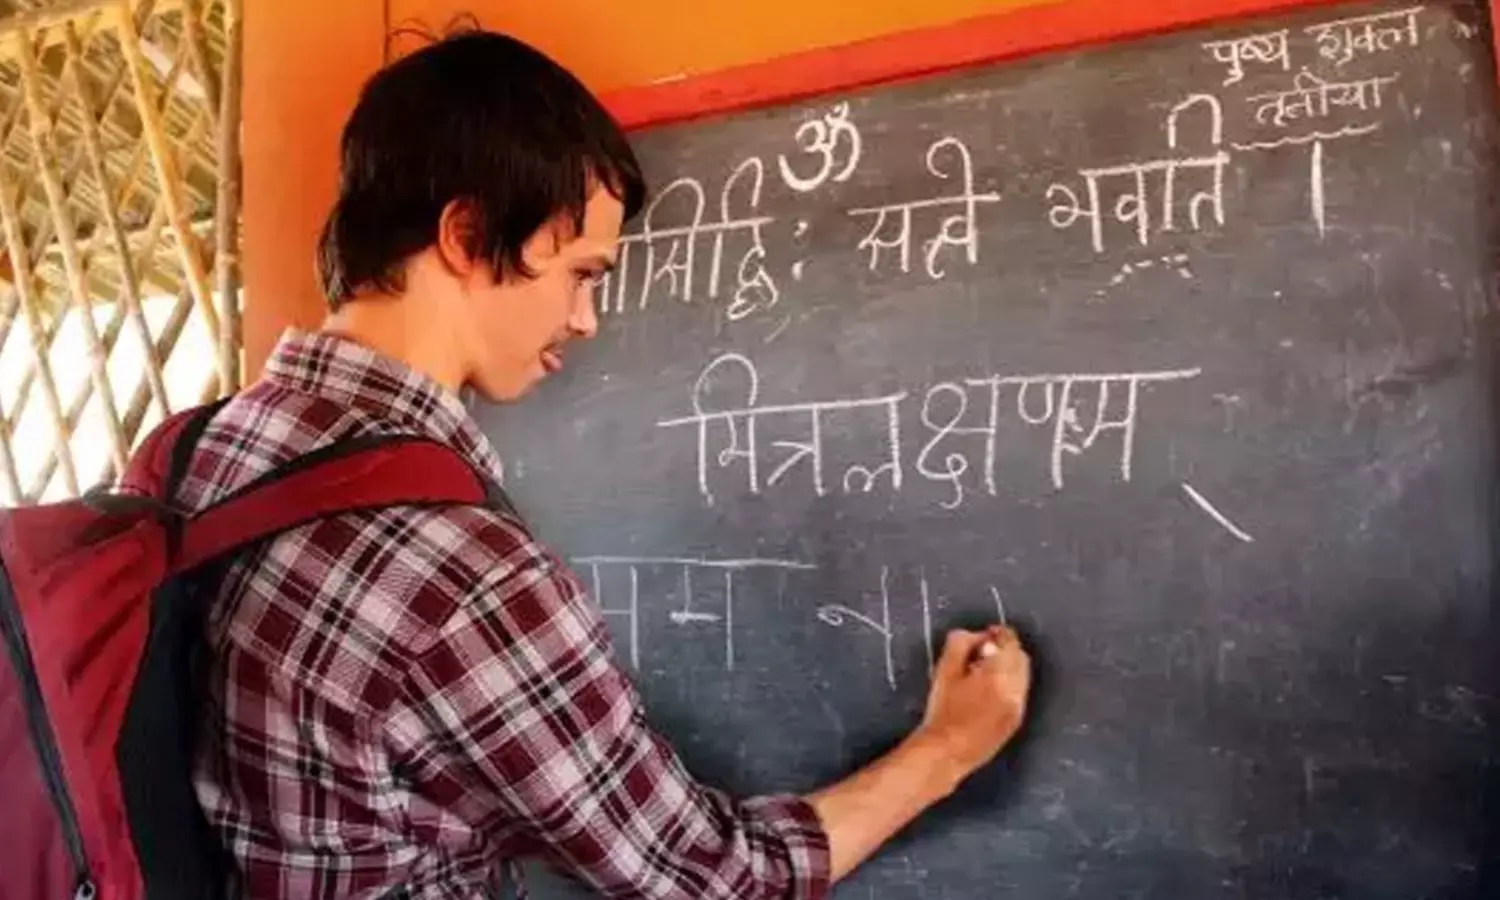 पुष्य शुक्ल
तृतीया
ॐ
सिद्धिः सत्त्वे भवति ।
मित्रलक्षणम्
मम ना